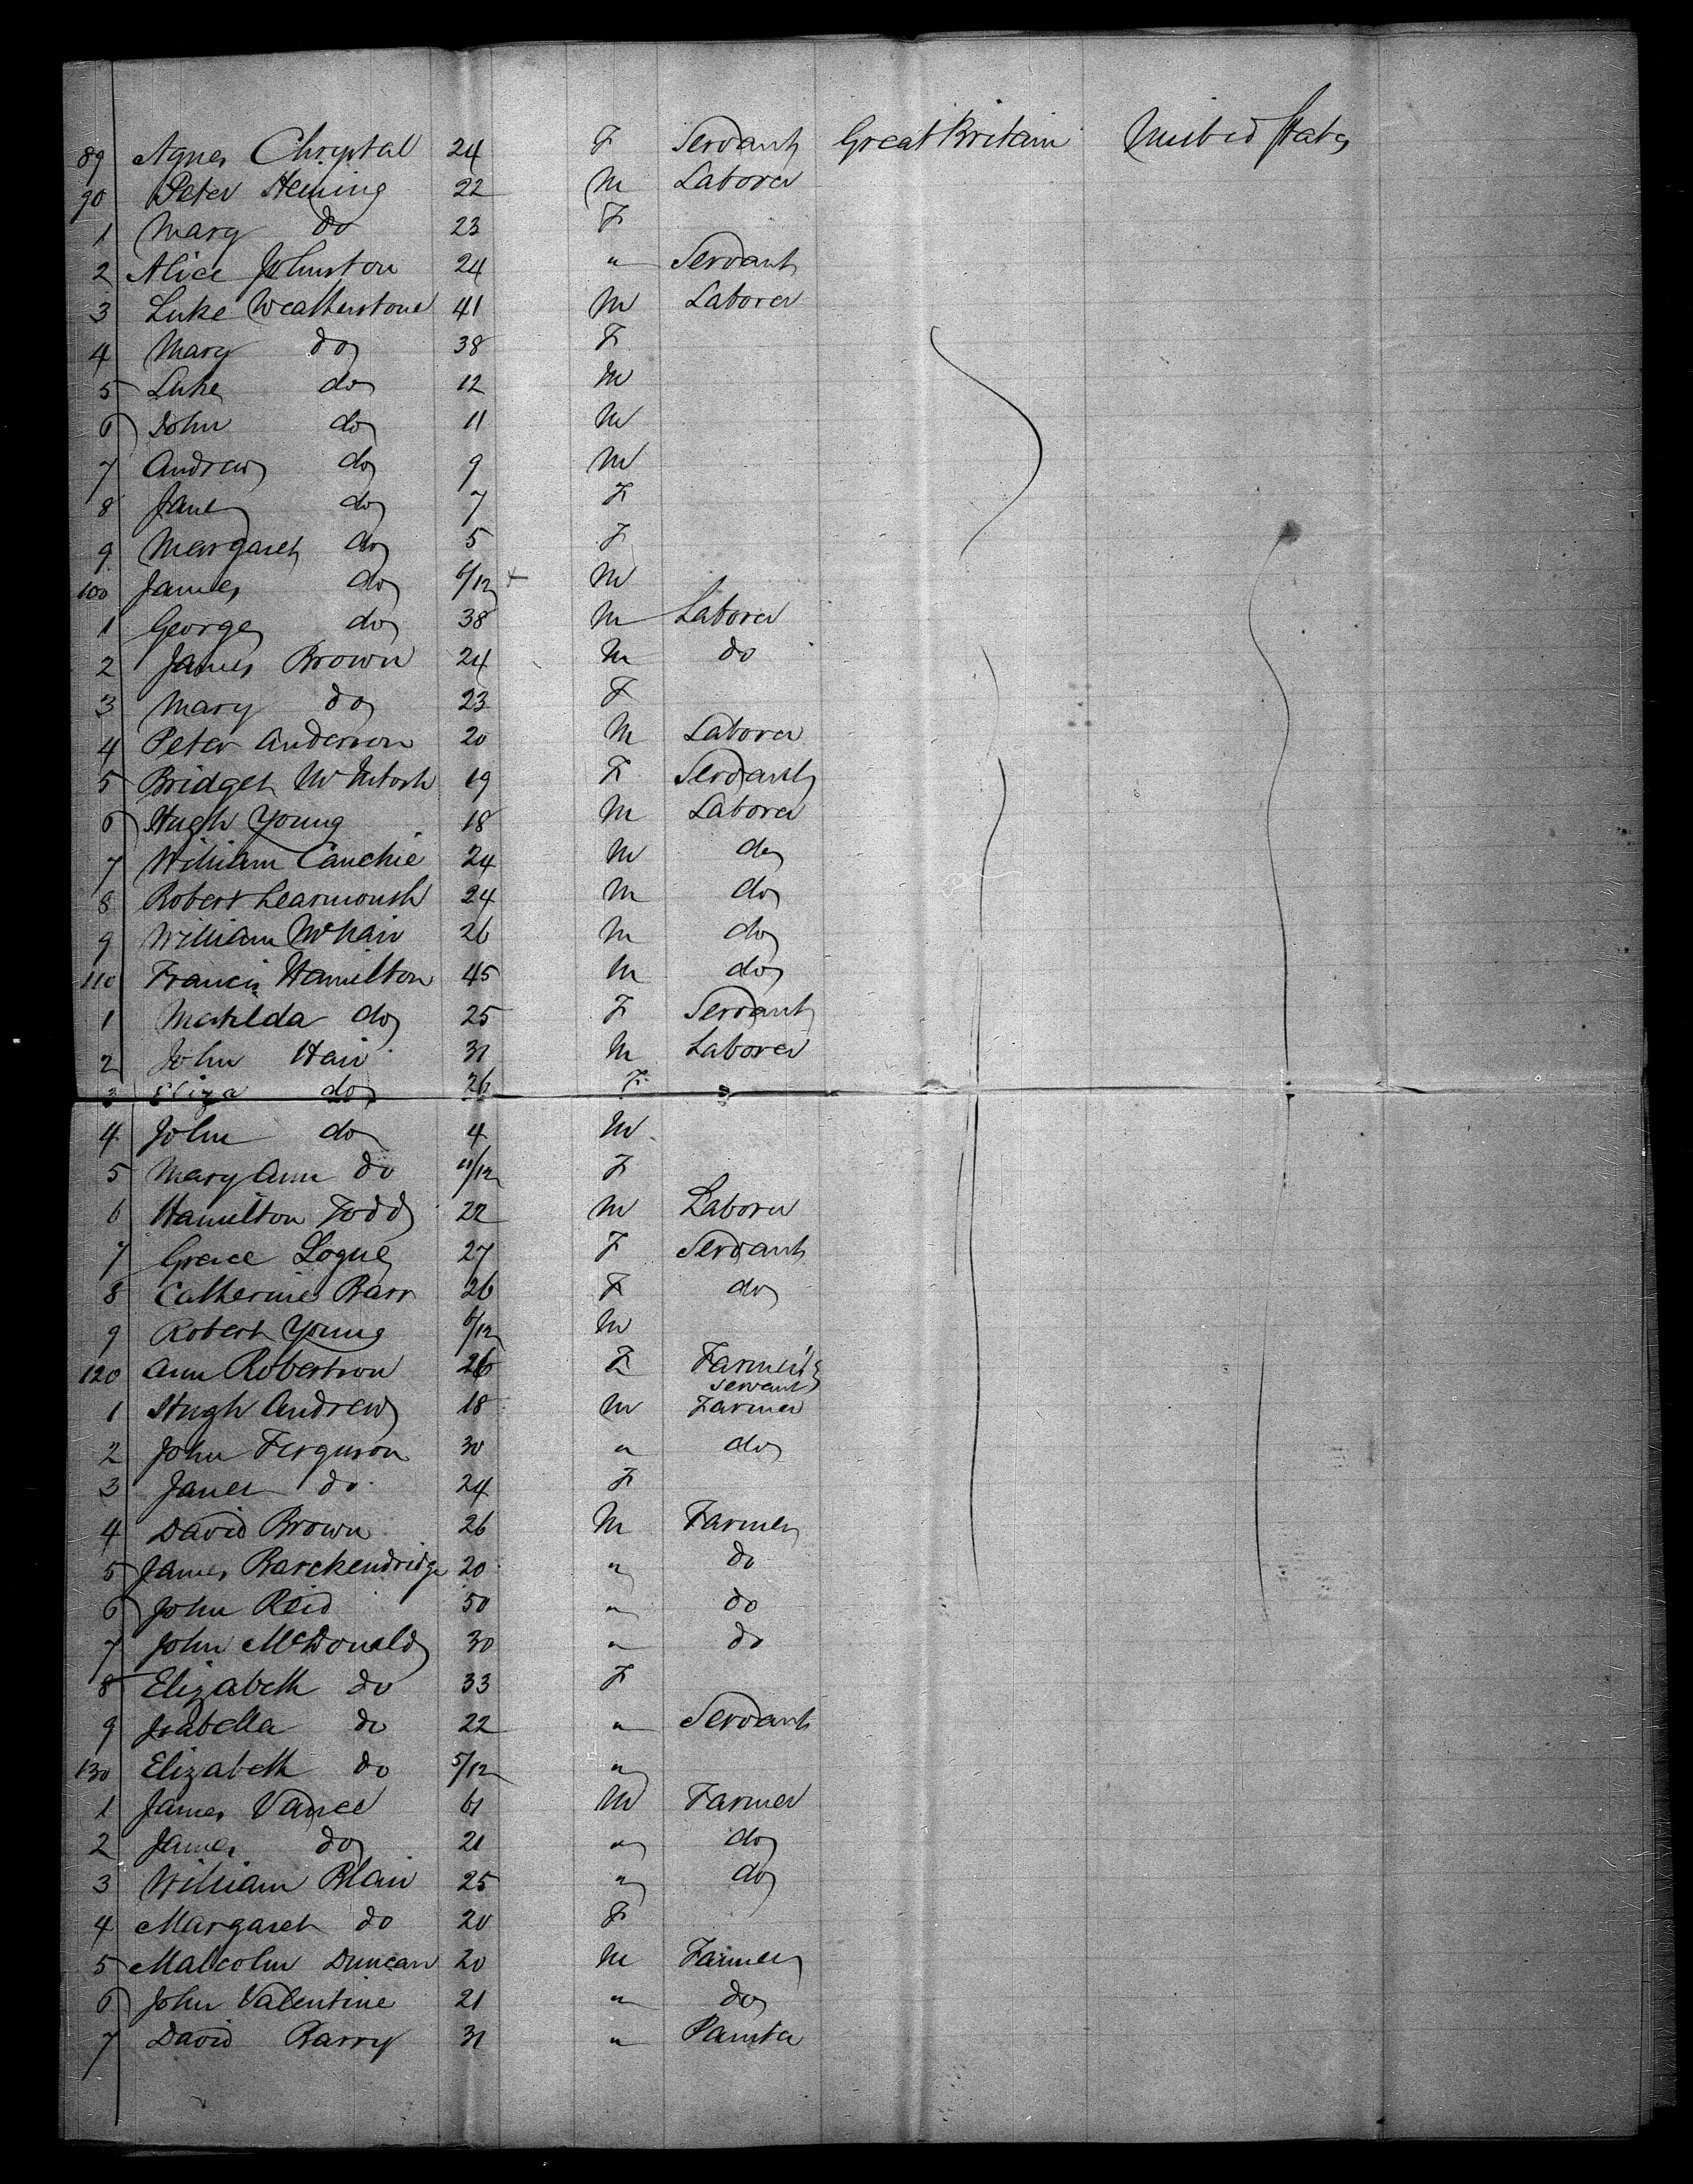 89 Agnes Chrystal 24 F Servant Great Britain United States
90 Peter Heming 22 M Laborer
1 Mary do 23 F
2 Alice Johnston 24 " Servant
3 Luke Weatherstone 41 M Laborer
4 Mary do 38 F
5 Luke do 12 M
6 John do 11 M
7 Andrew do 9 M
8 Jane do 7 F
9 Margaret do 5 F
100 James do 6/12 + M
1 George do 38 M Laborer
2 James Brown 24 M do
3 Mary do 23 F
4 Peter Anderson 20 M Laborer
5 Bridget McIntosh 19 F Servant
6 Hugh Young 18 M Laborer
7 William 24 M do
8 Robert Learmonth 24 M do
9 William McNair 26 M do
110 Francis Hamilton 45 M do
1 Matilda do 25 F Servant
2 John Hair 31 M Laborer
3 Eliza do 26 F
4 John do 4 M
5 Mary Ann do 11/12 F
6 Hamilton Todd 22 M Laborer
7 Grace Logue 27 F Servant
8 Catherine Barr 26 F do
9 Robert Young 6/12 M
120 Ann Robertson 26 F Farmer's
Servant
1 Hugh Andrew 18 M Farmer
2 John Ferguson 30 " do
3 Janet do 24 F
4 David Brown 26 M Farmer
5 James Barckendridge 20 " do
6 John Reid 50 " do
7 John McDonald 30 " do
8 Elizabeth do 33 F
9 Isabella do 22 " Servant
130 Elizabeth do 5/12 "
1 James Vance 61 M Farmer
2 James do 21 " do
3 William Blair 25 " do
4 Margaret do 20 F
5 Malcolm Duncan 20 M Farmer
6 John Valentine 21 " do
7 David Barry 31 " Painter